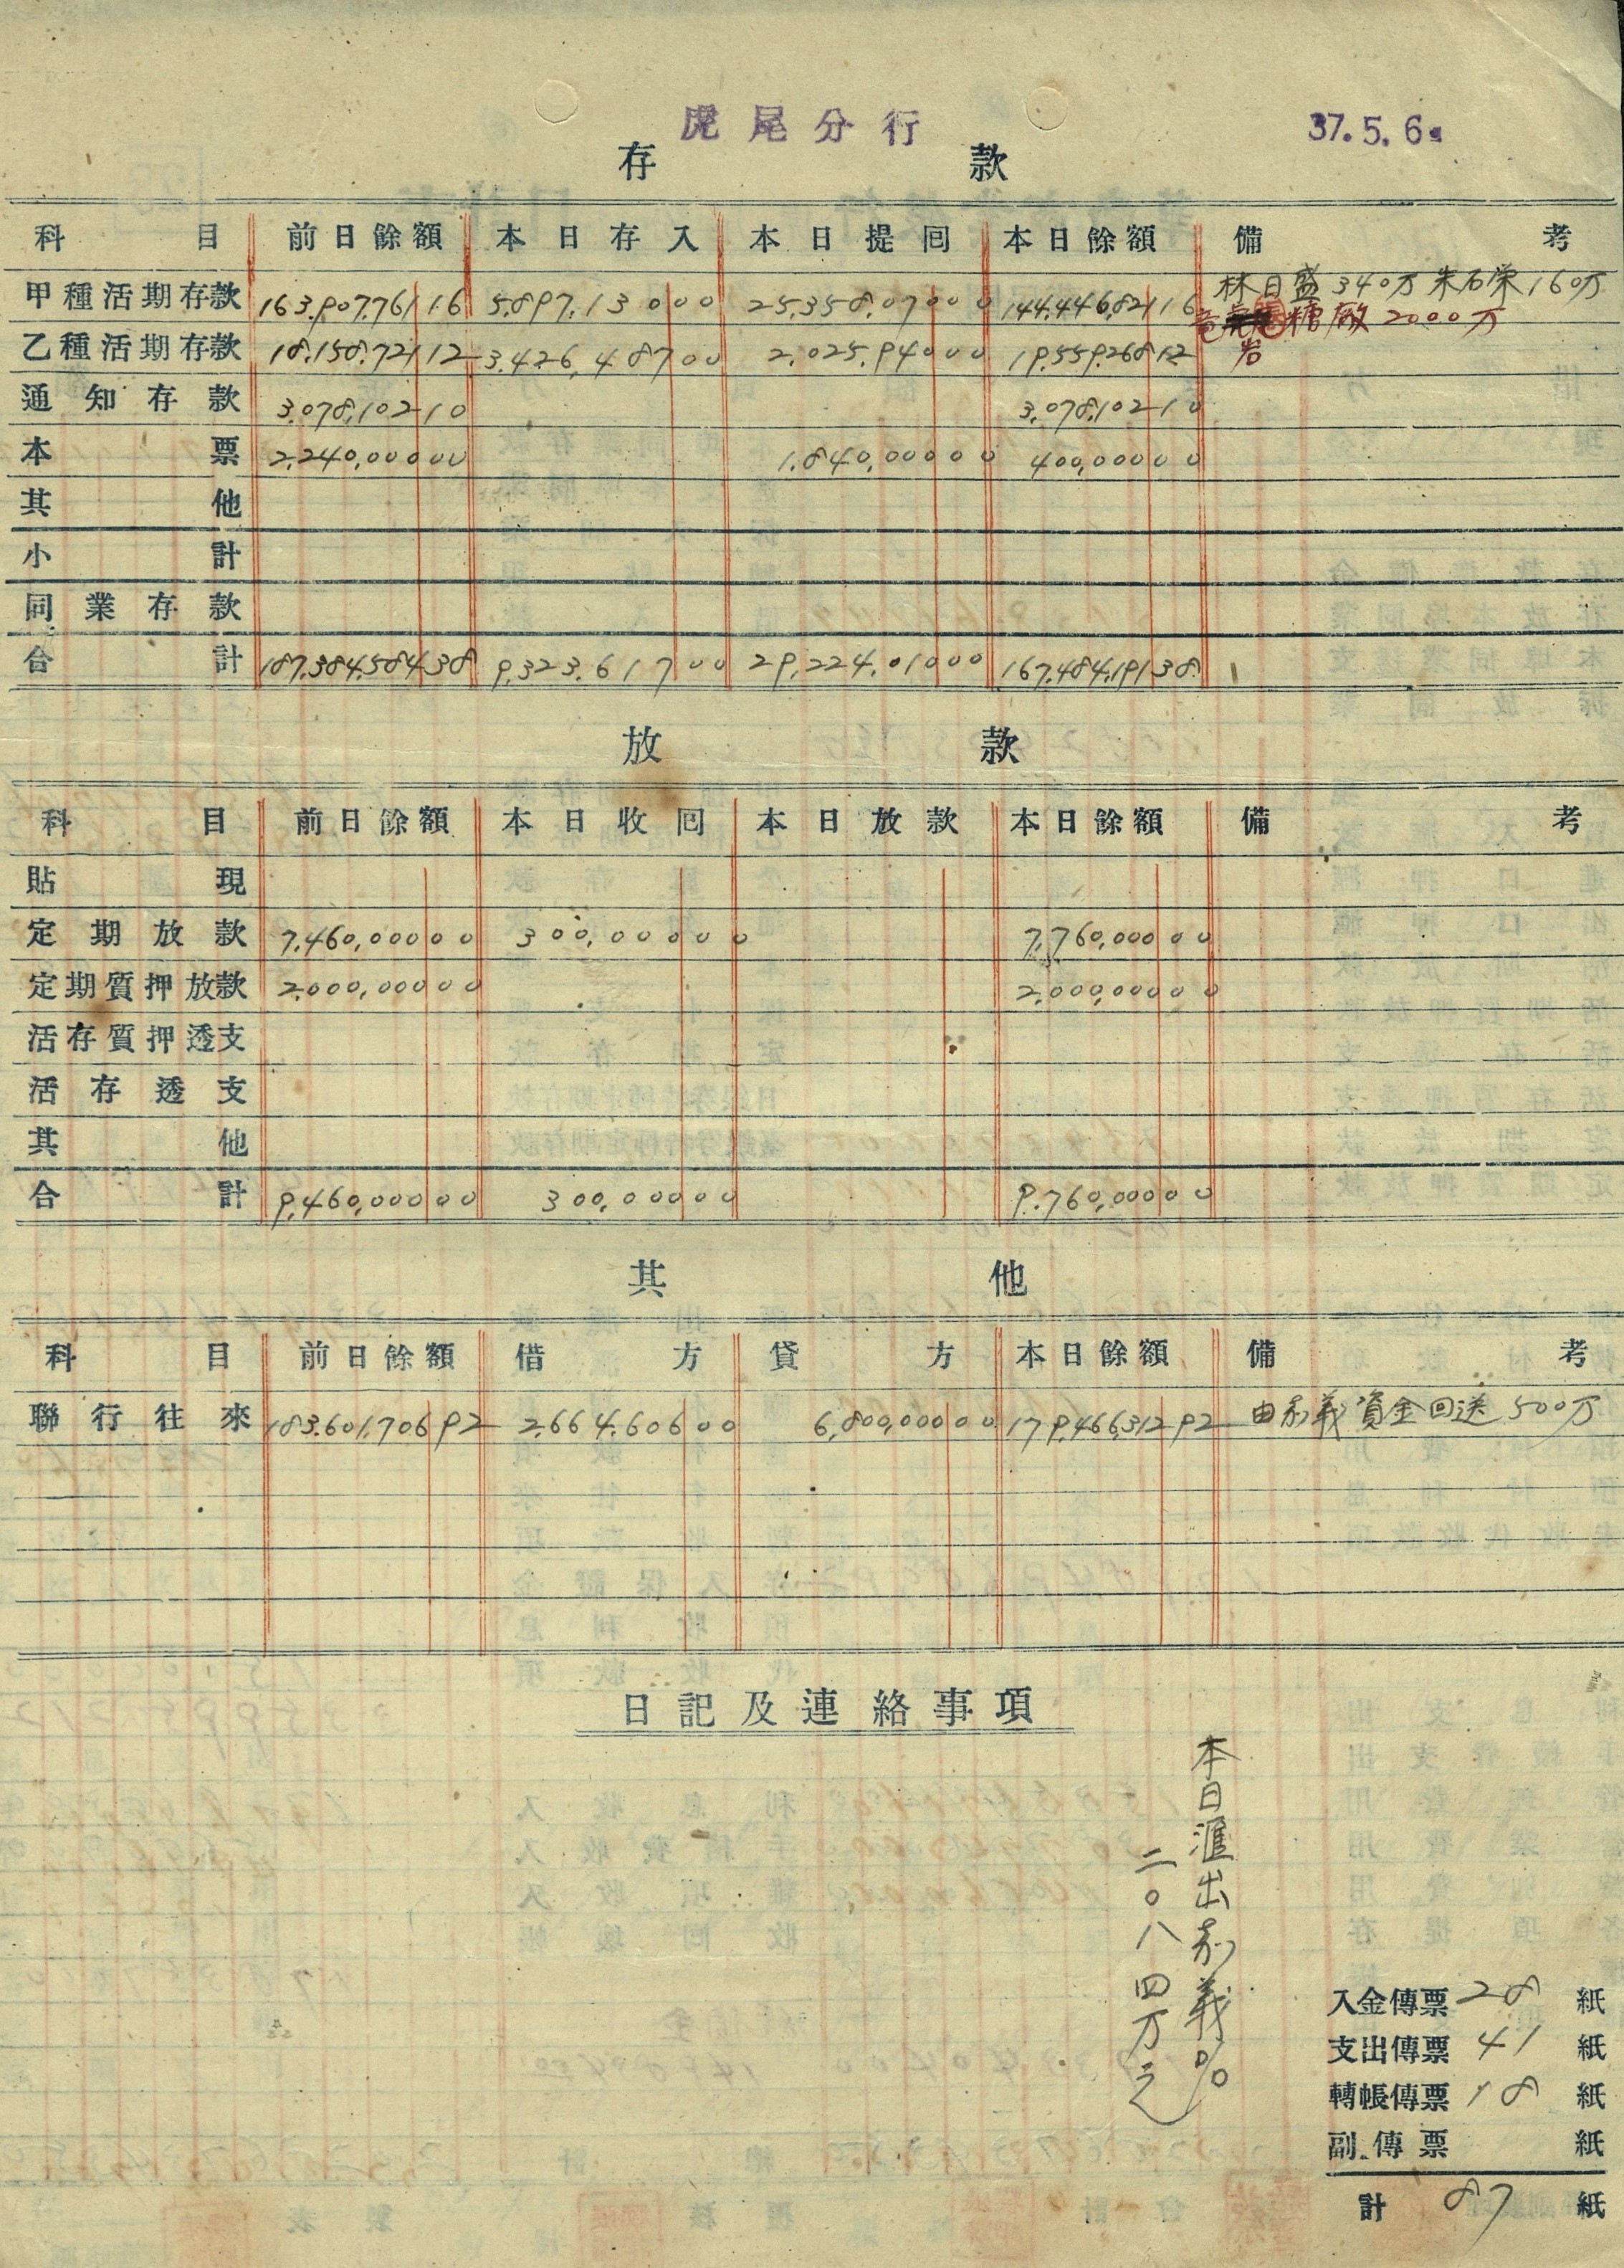 虎尾分行 37.5.6.
存款
科目 前日餘額 本日存入 本日提囘 本日餘額 備考
甲種活期存款 163,907,761 16 5,897,130 00 25,358,070 00 144,446,821 16 林日盛340万 朱石荣160万
竜岩糖廠2000万
乙種活期存款 18,158,721 12 3,426,487 00 2,025,940 00 19,559,268 12
通知存款 3,078,102 10 3,078,102 10
本票 2,240,000 00 1,840,000 00 400,000 00
其他
小計
同業存款
合計 187,384,584 38 9,323,617 00 29,224,010 00 167,484,191 38
放款
科目 前日餘額 本日收囘 本日放款 本日餘額 備考
貼現
定期放款 7,460,000 00 300,000 00 7,760,000 00
定期質押放款 2,000,000 00 2,000,000 00
活存質押透支
活存透支
其他
合計 9,460,000 00 300,000 00 9,760,000 00
其他
科目 前日餘額 借方 貸方 本日餘額 備考
聯行往來 183,601,706 92 2,664,606 00 6,800,000 00 179,466,312 92 由嘉義資金回送500万
日記及連絡事項
本日滙出嘉義%
二〇八四万元
入金傳票 28 紙
支出傳票 41 紙
轉帳傳票 18 紙
副傳票 紙
計 87 紙